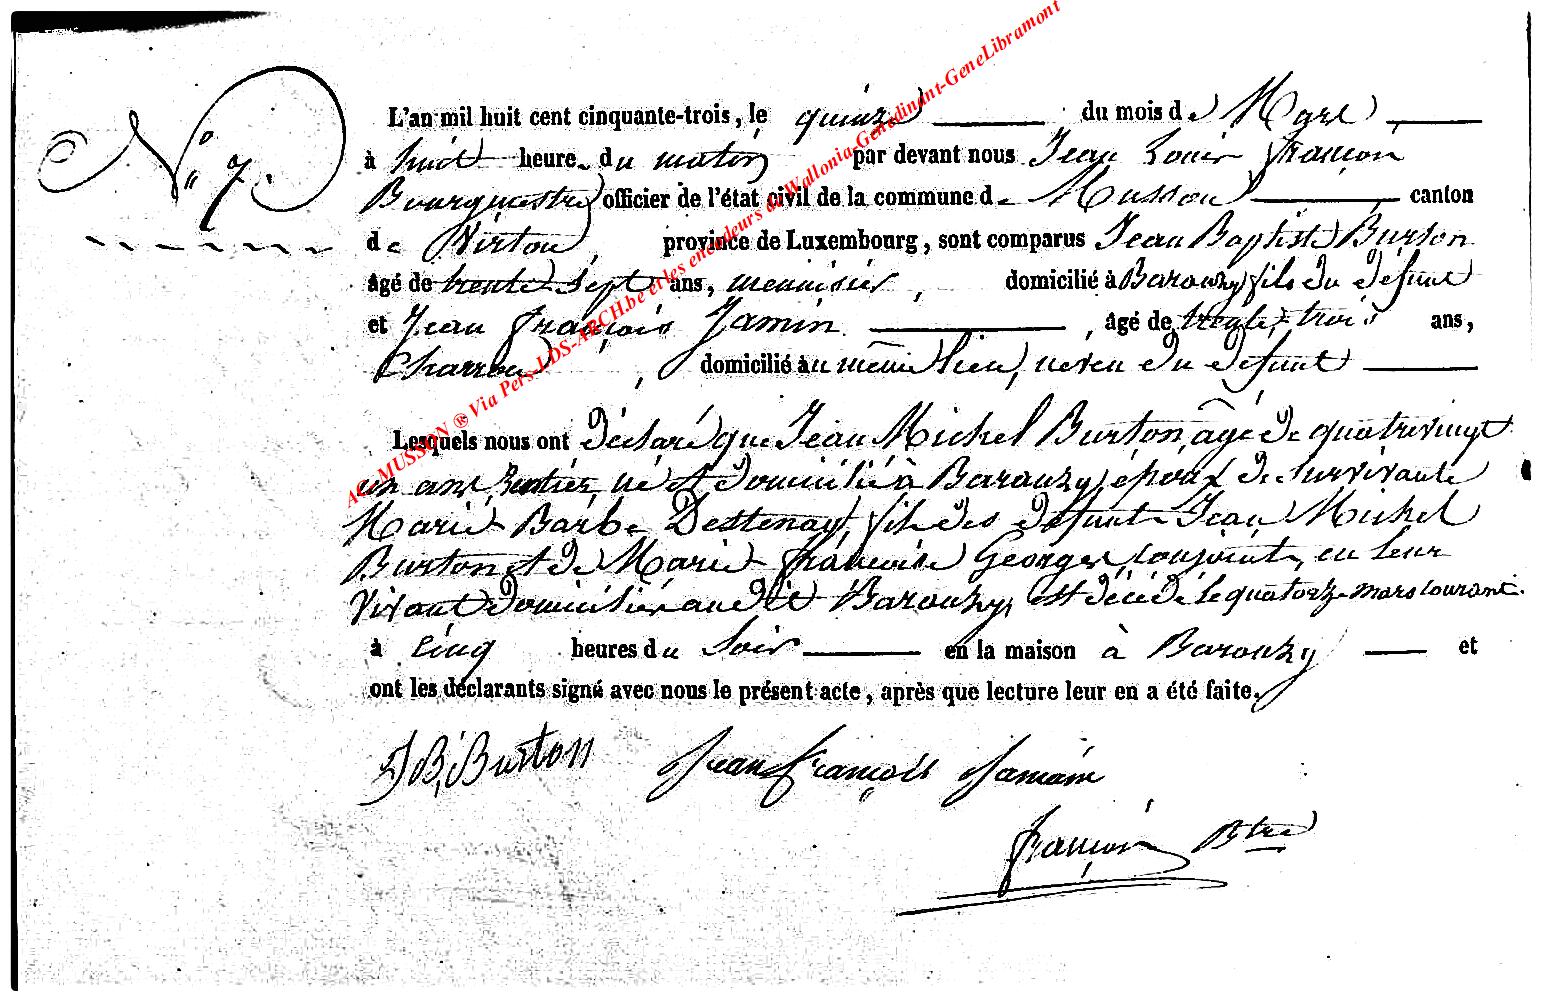 N° 7.
L'an mil huit cent cinquante-trois, le quinze du mois de Mars
à huit heures du matin par devant nous Jean Louis françois
Bourguestre officier de l'état civil de la commune de Musson canton
de Virton, province de Luxembourg, sont comparus Jean Baptiste Burton
âgé de trente sept ans, menuisier, domicilié à Baranzy fils du défunt
et Jean François Jamin, âgé de trente-trois ans,
Charron, domicilié au même lieu, neveu du défunt
Lesquels nous ont déclaré que Jean Michel Burton, âgé de quatrevingt
un ans, Rentier, né et domicilié à Baranzy, époux de survivante
Marie Barbe Destenay, fils des défunts Jean Michel
Burton et de Marie françoise Georges, conjoints, en leur
vivant domiciliés audit Baranzy, est décédé le quatorze mars courant
à cinq heures du soir en la maison à Baranzy et
ont les déclarants signé avec nous le présent acte, après que lecture leur en a été faite.
JB, Burton Jean françois Jamain
françois Btre
Ac MUSSON ® Via Pers LDS-ARCH.be et les encodeurs de Wallonia-Genedinant-GeneLibramont